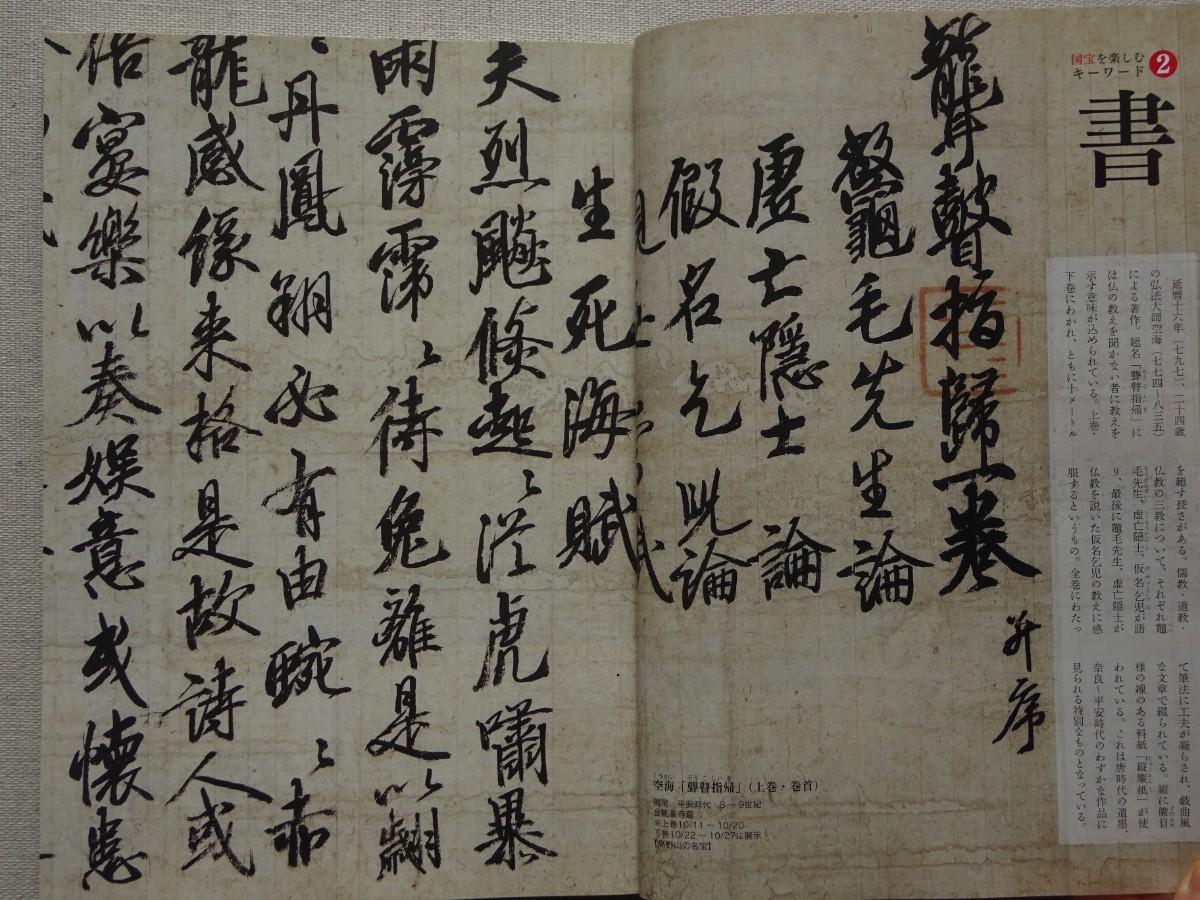 国宝を楽しむ
キーワード
2
書
延暦十六年(七九七)、二十四歳
の弘法大師空海(七七四〜八三五)
による著作。題名「聾瞽指帰」に
は仏の教えを聞かない者に教えを
示す意味が込められている。上巻・
下巻にわかれ、ともに十メートル
を超す長さがある。儒教・道教・
仏教の三教について、それぞれ鼈
毛先生、虚亡隠士、仮名乞児が語
り、最後に鼈毛先生、虚亡隠士が
仏教を説いた仮名乞児の教えに感
服するというもの。全巻にわたっ
て筆法に工夫が凝らされ、戯曲風
な文章で綴られている。縦に簾目
様の線のある料紙「縦簾紙」が使
われている。これは唐時代の遺墨、
奈良〜平安時代のわずかな作品に
見られる特別なものとなっている。
聾瞽指歸一巻 并序
鼇毛先生論
虚亡隱士論
假名乞児論
生死海賦
夫烈飈倐起從虎嘯暴
雨霶霈待兔離是以翩
丹鳳翔必有由蜿赤
龍感縁来格是故詩人或
宴樂以奏娯意或懷悲
空海「聾瞽指帰」(上巻・巻首)
国宝 平安時代・8〜9世紀
金剛峯寺蔵
※上巻10/11〜10/20
下巻10/22〜10/27に展示
【高野山の名宝】